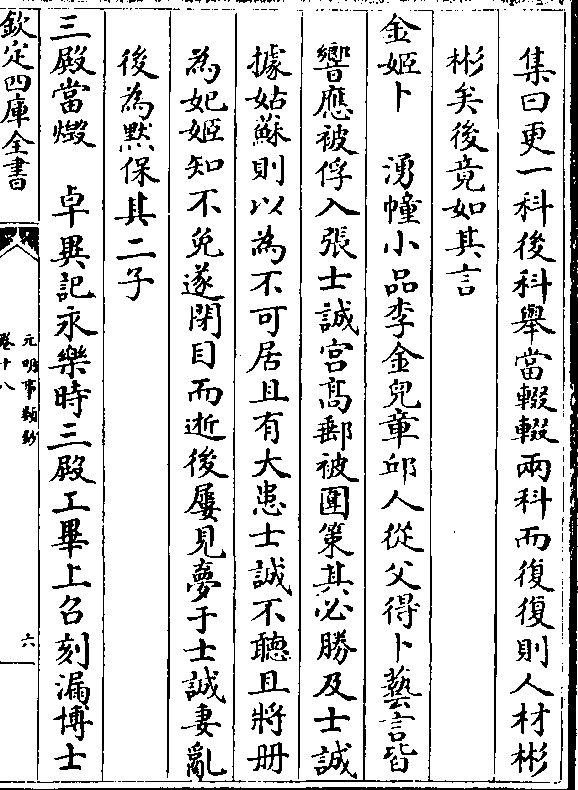 集曰更一科後科舉當輟輟兩科而復復則人材彬
彬矣後竟如其言
金姬卜　湧幢小品李金兒章邱人從父得卜藝言皆
響應被俘入張士誠宫高郵被圍策其必勝及士誠
據姑蘇則以為不可居且有大患士誠不聽且將册
為妃姬知不免遂閉目而逝後屢見夢于士誠妻亂
後為黙保其二子
三殿當燬　卓異記永樂時三殿工畢上召刻漏博士
欽定四庫全書
元明事類鈔
卷十八
六